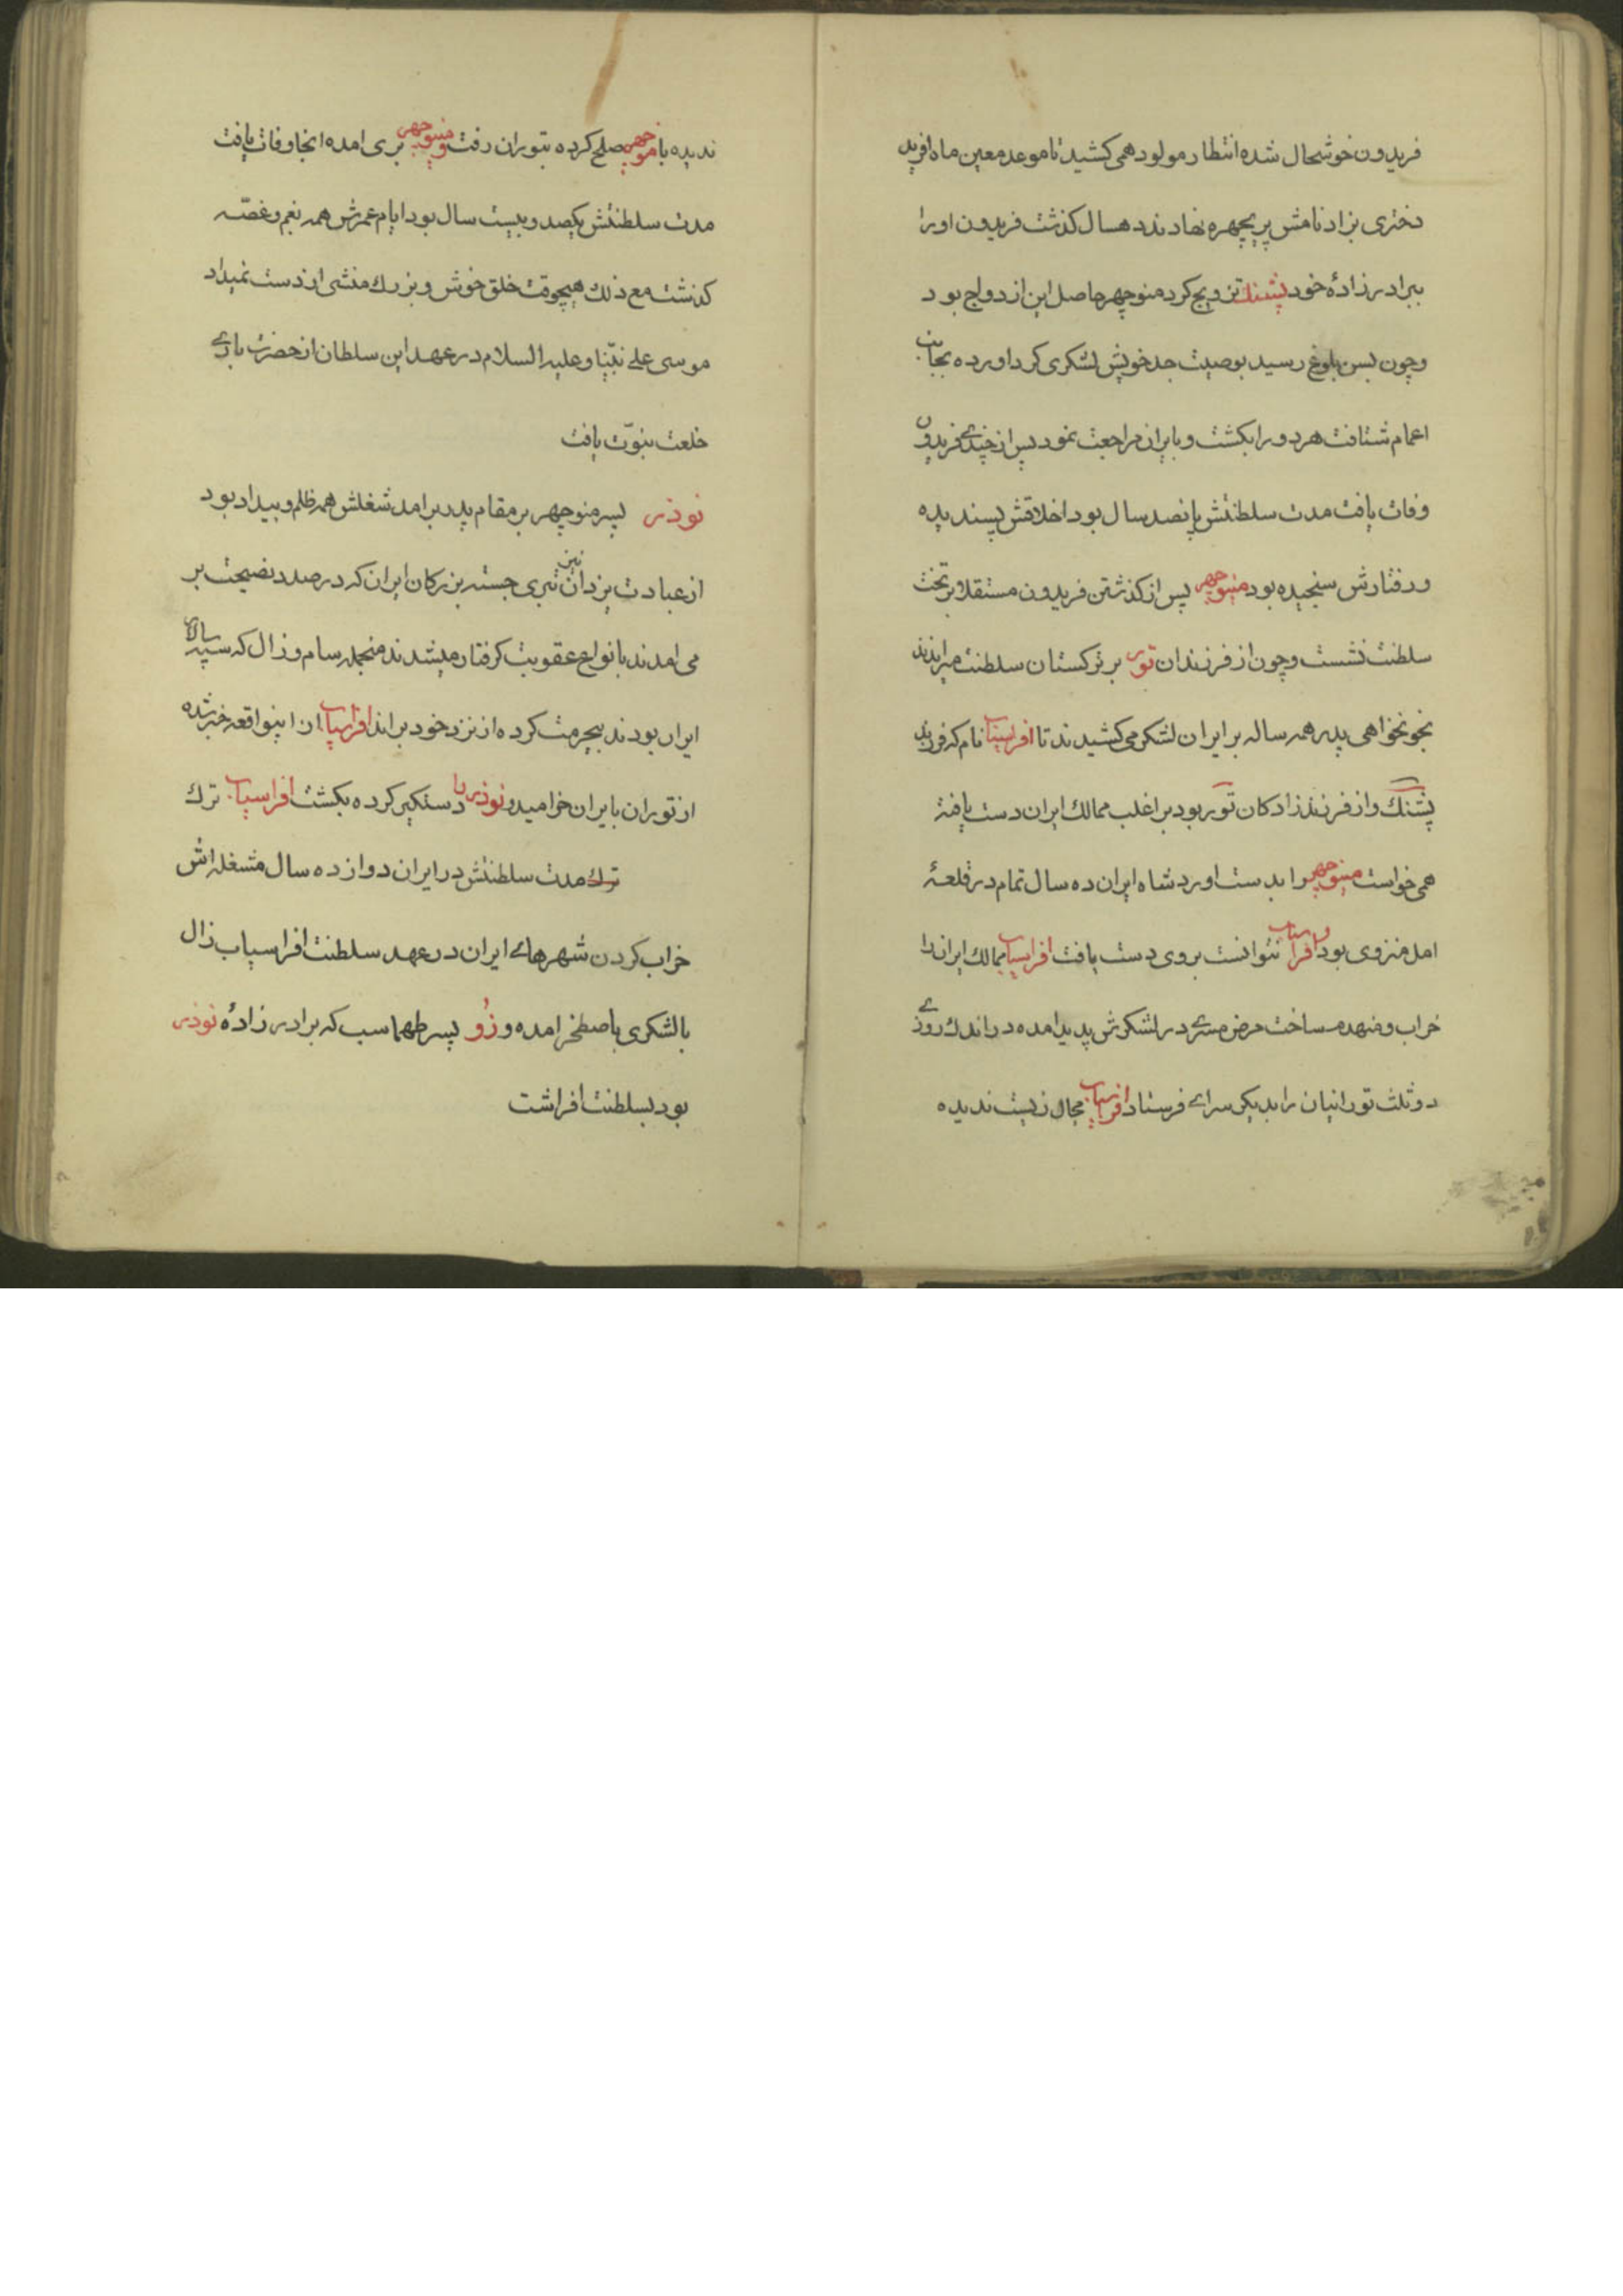 فریدون خوشحال شده انتظار مولود همی کشید تا موعد معین ماه افرید
دختری بزاد نامش پریچهره نهادند دهسال کذشت فریدون او را
ببرادرزادهٔ خود پشنك تزویج کرد منوچهر حاصل این ازدواج بود
وچون بسن بلوغ رسید بوصیت جد خویش لشکری کرد اورده بجانب
اعمام شتافت هر دو را بکشت و بایران مراجعت نمود پس از چندی فریدون
وفات یافت مدت سلطنتش پانصد سال بود اخلاقش پسندیده
و رفتارش سنجیده بود منوچهر پس از کذشتن فریدون مستقلا بر تخت
سلطنت نشست و چون از فرزندان تور بر ترکستان سلطنت میراندند
بخونخواهی پدر همه ساله بر ایران لشکر می کشیدند تا افراسیاب نام که فرزند
پشنك و از فرزندزادکان تور بود بر اغلب ممالك ایران دست یافته
همی خواست منوچهر را بدست اورد شاه ایران ده سال تمام در قلعهٔ
امل منزوی بود و افراسیاب نتوانست بروی دست یافت افراسیاب ممالك ایران را
خراب و منهدم ساخت مرض مسری در لشکرش پدید امده در اندك روزی
دو ثلث تورانیان را بدیکر سرای فرستاد افراسیاب مجال زیست ندیده
ندیده با منوچهر صلح کرده بتوران رفت و منوچهر بری امده انجا وفات یافت
مدت سلطنتش یکصد و بیست سال بود ایام عمرش همه بغم و غصّه
کذشت مع ذلك هیچوقت خلق خوش و بزرك منشی از دست نمیداد
موسی علی نبیّنا و علیه السلام در عهد این سلطان از حضرت باری
خلعت نبوّت یافت
نوذر پسر منوچهر بر مقام پدر برامد شغلش همه ظلم و بیداد بود
از عبادت یزدان نیز تبری جسته بزرکان ایران که در صدد نصیحت بر
می امدند بانواع عقوبت کرفتار میشدند منجمله سام و زال که سپه سالار
ایران بودند بیحرمت کرده از نزد خود براند افراسیاب از اینواقعه خبر شده
از توران بایران خرامید و نوذر را دستکیر کرده بکشت افراسیاب ترك
ترك مدت سلطنتش در ایران دوازده سال مشغله اش
خراب کردن شهرهای ایران در عهد سلطنت افراسیاب زال
با لشکری باصطخر امده و زو پسر طهماسب که برادرزادهٔ نوذر
بود بسلطنت افراشت